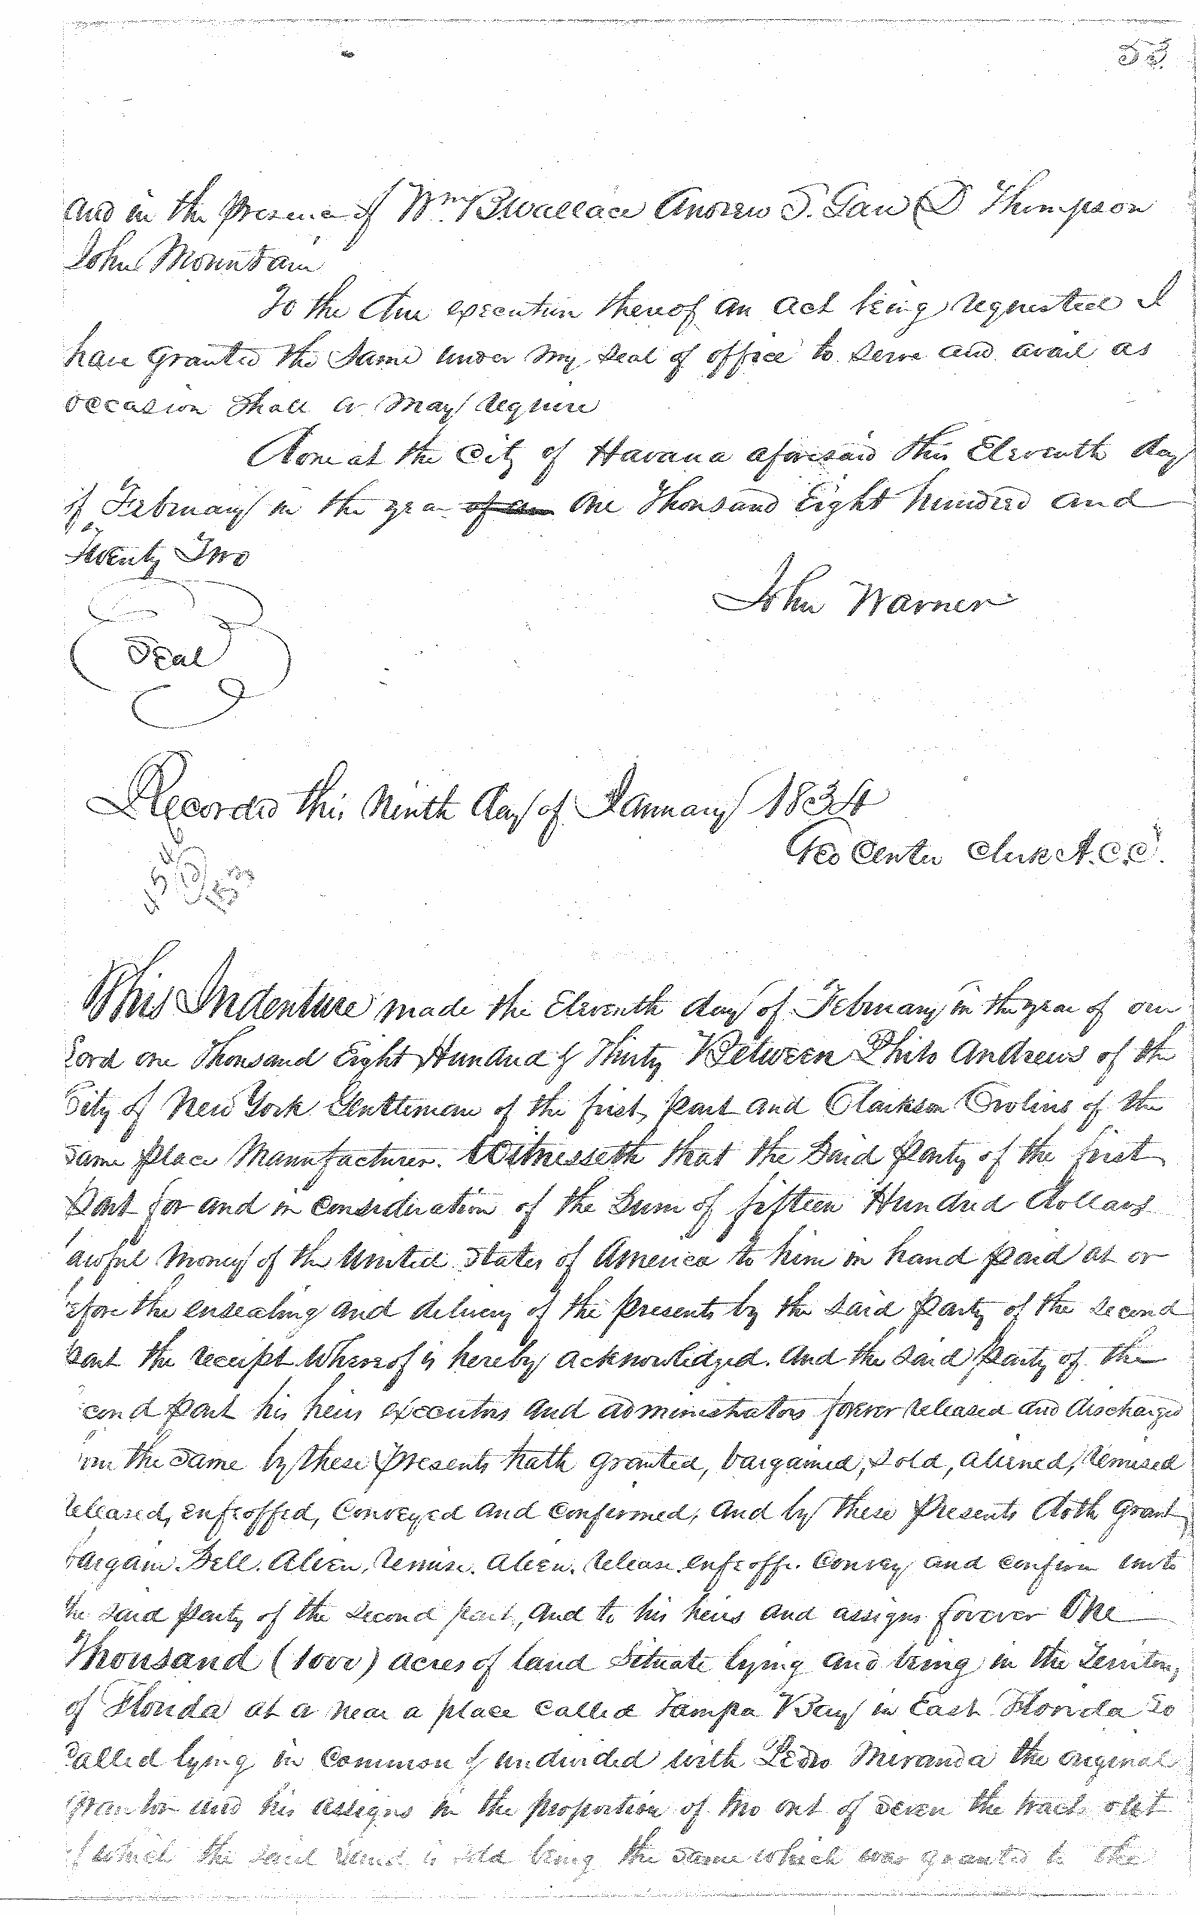 53
and in the presence of Wm B Wallace Andrew T. Law D. Thompson
John Mountain
To the due execution thereof an act being requested I
have Granted the Same under my Seal of office to serve and avail as
occasion Shall or May require
Done at the City of Havana aforesaid this Eleventh day
of February in the year of an one Thousand Eight hundred and
Twenty Two
John Warner
Seal
Recorded this Ninth day of January 1834
Geo Center Clerk A.C.C.
This Indenture made the Eleventh day of February in the year of our
Lord one Thousand Eight Hundred & Thirty Between Philo Andrews of the
City of New York Gentleman of the first part and Clarkson Crolius of the
Same place Manufacturer. Witnesseth that the Said Party of the first
Part for and in consideration of the Sum of fifteen Hundred dollars
awful money of the United States of America to him in hand paid at or
efore the ensealing and delivery of the presents by the said Party of the second
part the receipt Whereof is hereby acknowledged. And the said Party of the
cond part his heirs executors and administrators forever released and discharged
om the same by these Presents hath granted, bargained, sold, aliened, remised
released, enfeoffed, Conveyed and confirmed, and by these Presents doth grant
bargain. Sell. Alien. remise. alien. release. enfeoff. Convey and confirm unto
the said party of the second part, and to his heirs and assigns forever One
Thousand (1000) acres of land Situate lying and being in the Territory
of Florida at or near a place called Tampa Bay in East Florida So
called lying in common & undivided with Pedro Miranda the original
Grantor and his assigns in the proportion of two out of seven the tract out
of which the said Land is sold being the same which was granted to the